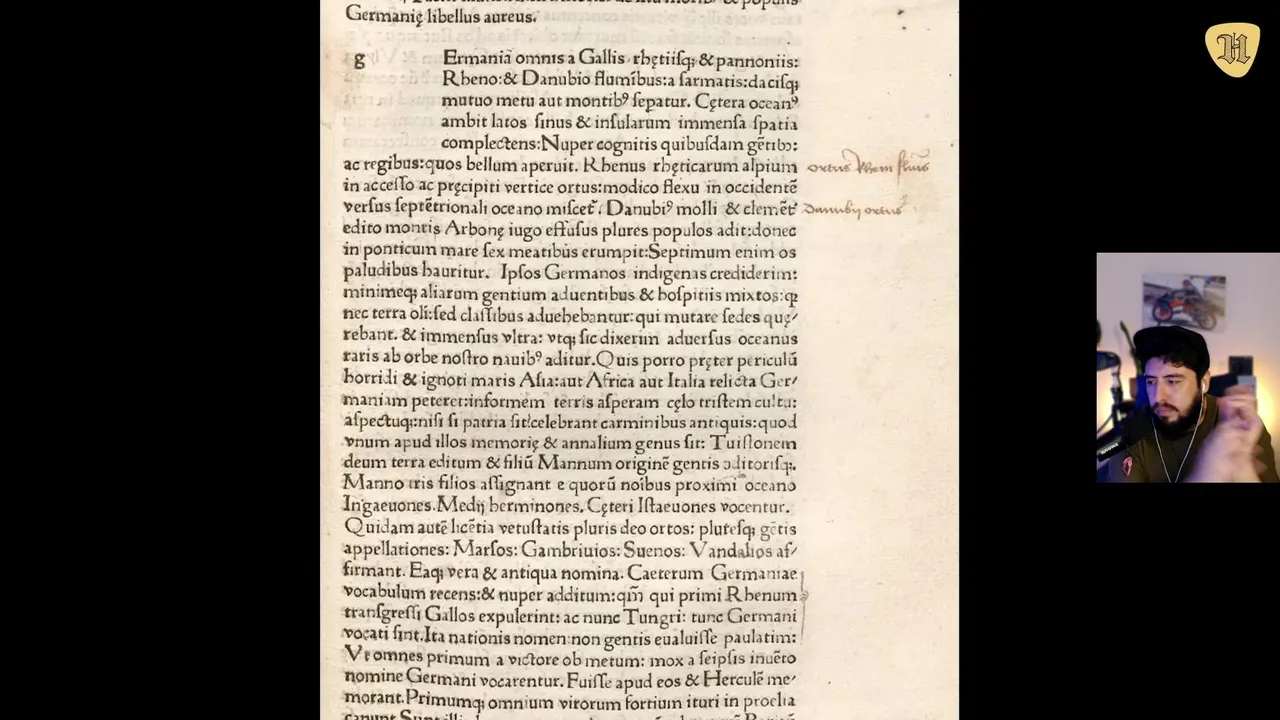 Germanię libellus aureus.
g Ermaniā omnis a Gallis rhętiisq; & pannoniis:
Rheno:& Danubio flumībus:a sarmatis:dacisq;
mutuo metu aut montibꝰ sepatur. Cętera oceanꝰ
ambit latos sinus & insularum immensa spatia
complectens:Nuper cognitis quibusdam gētibꝰ:
ac regibus:quos bellum aperuit. Rhenus rhęticarum alpium
in accesso ac pręcipiti vertice ortus:modico flexu in occidentē
versus septētrionali oceano miscet̉. Danubiꝰ molli & clemēt̉
edito montis Arbonę iugo effusus plures populos adit:donec
in ponticum mare sex meatibus erumpit:Septimum enim os
paludibus hauritur. Ipsos Germanos indigenas crediderim:
minimeq; aliarum gentium aduentibus & hospitiis mixtos:q;
nec terra oli:sed classibus aduehebantur:qui mutare sedes quę/
rebant. & immensus vltra: vtq; sic dixerim aduersus oceanus
raris ab orbe nostro nauibꝰ aditur.Quis porro pręter periculū
horridi & ignoti maris Asia:aut Africa aut Italia relicta Ger/
maniam peteret:informem terris asperam cęlo tristem cultu:
aspectuq;:nisi si patria sit:celebrant carminibus antiquis:quod
vnum apud illos memorię & annalium genus sit: Tuistonem
deum terra editum & filiū Mannum originē gentis
Manno tris filios assignant e quorū noibus proximi oceano
Ingaeuones.Medij herminones. Cęteri Istaeuones vocentur.
Quidam autē licētia vetustatis pluris deo ortos: plutesq; gētis
appellationes: Marsos: Gambriuios: Sueuos: Vandalios af/
firmant. Eaq; vera & antiqua nomina. Caeterum Germaniae
vocabulum recens:& nuper additum:qm̄ qui primi Rhenum
transgressi Gallos expulerint: ac nunc Tungri: tunc Germani
vocati sint.Ita nationis nomen:non gentis eualuisse paulatim:
Vt omnes primum a victore ob metum: mox a seipsis inuēto
nomine Germani vocarentur. Fuisse apud eos & Herculē me/
morant.Primumq; omnium virorum fortium ituri in proelia
ortus Rheni fluuii
Danubij ortus